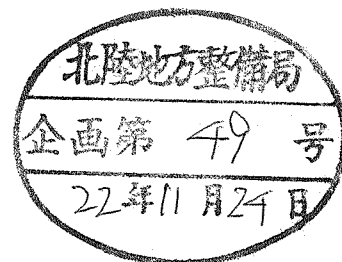 北陸地方整備局
企画第 49 号
22年11月24日